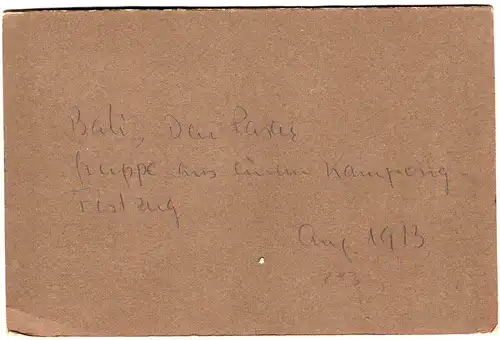 Bali, Den Pasar
Gruppe aus einem Kampong-
Festzug
Aug. 1913